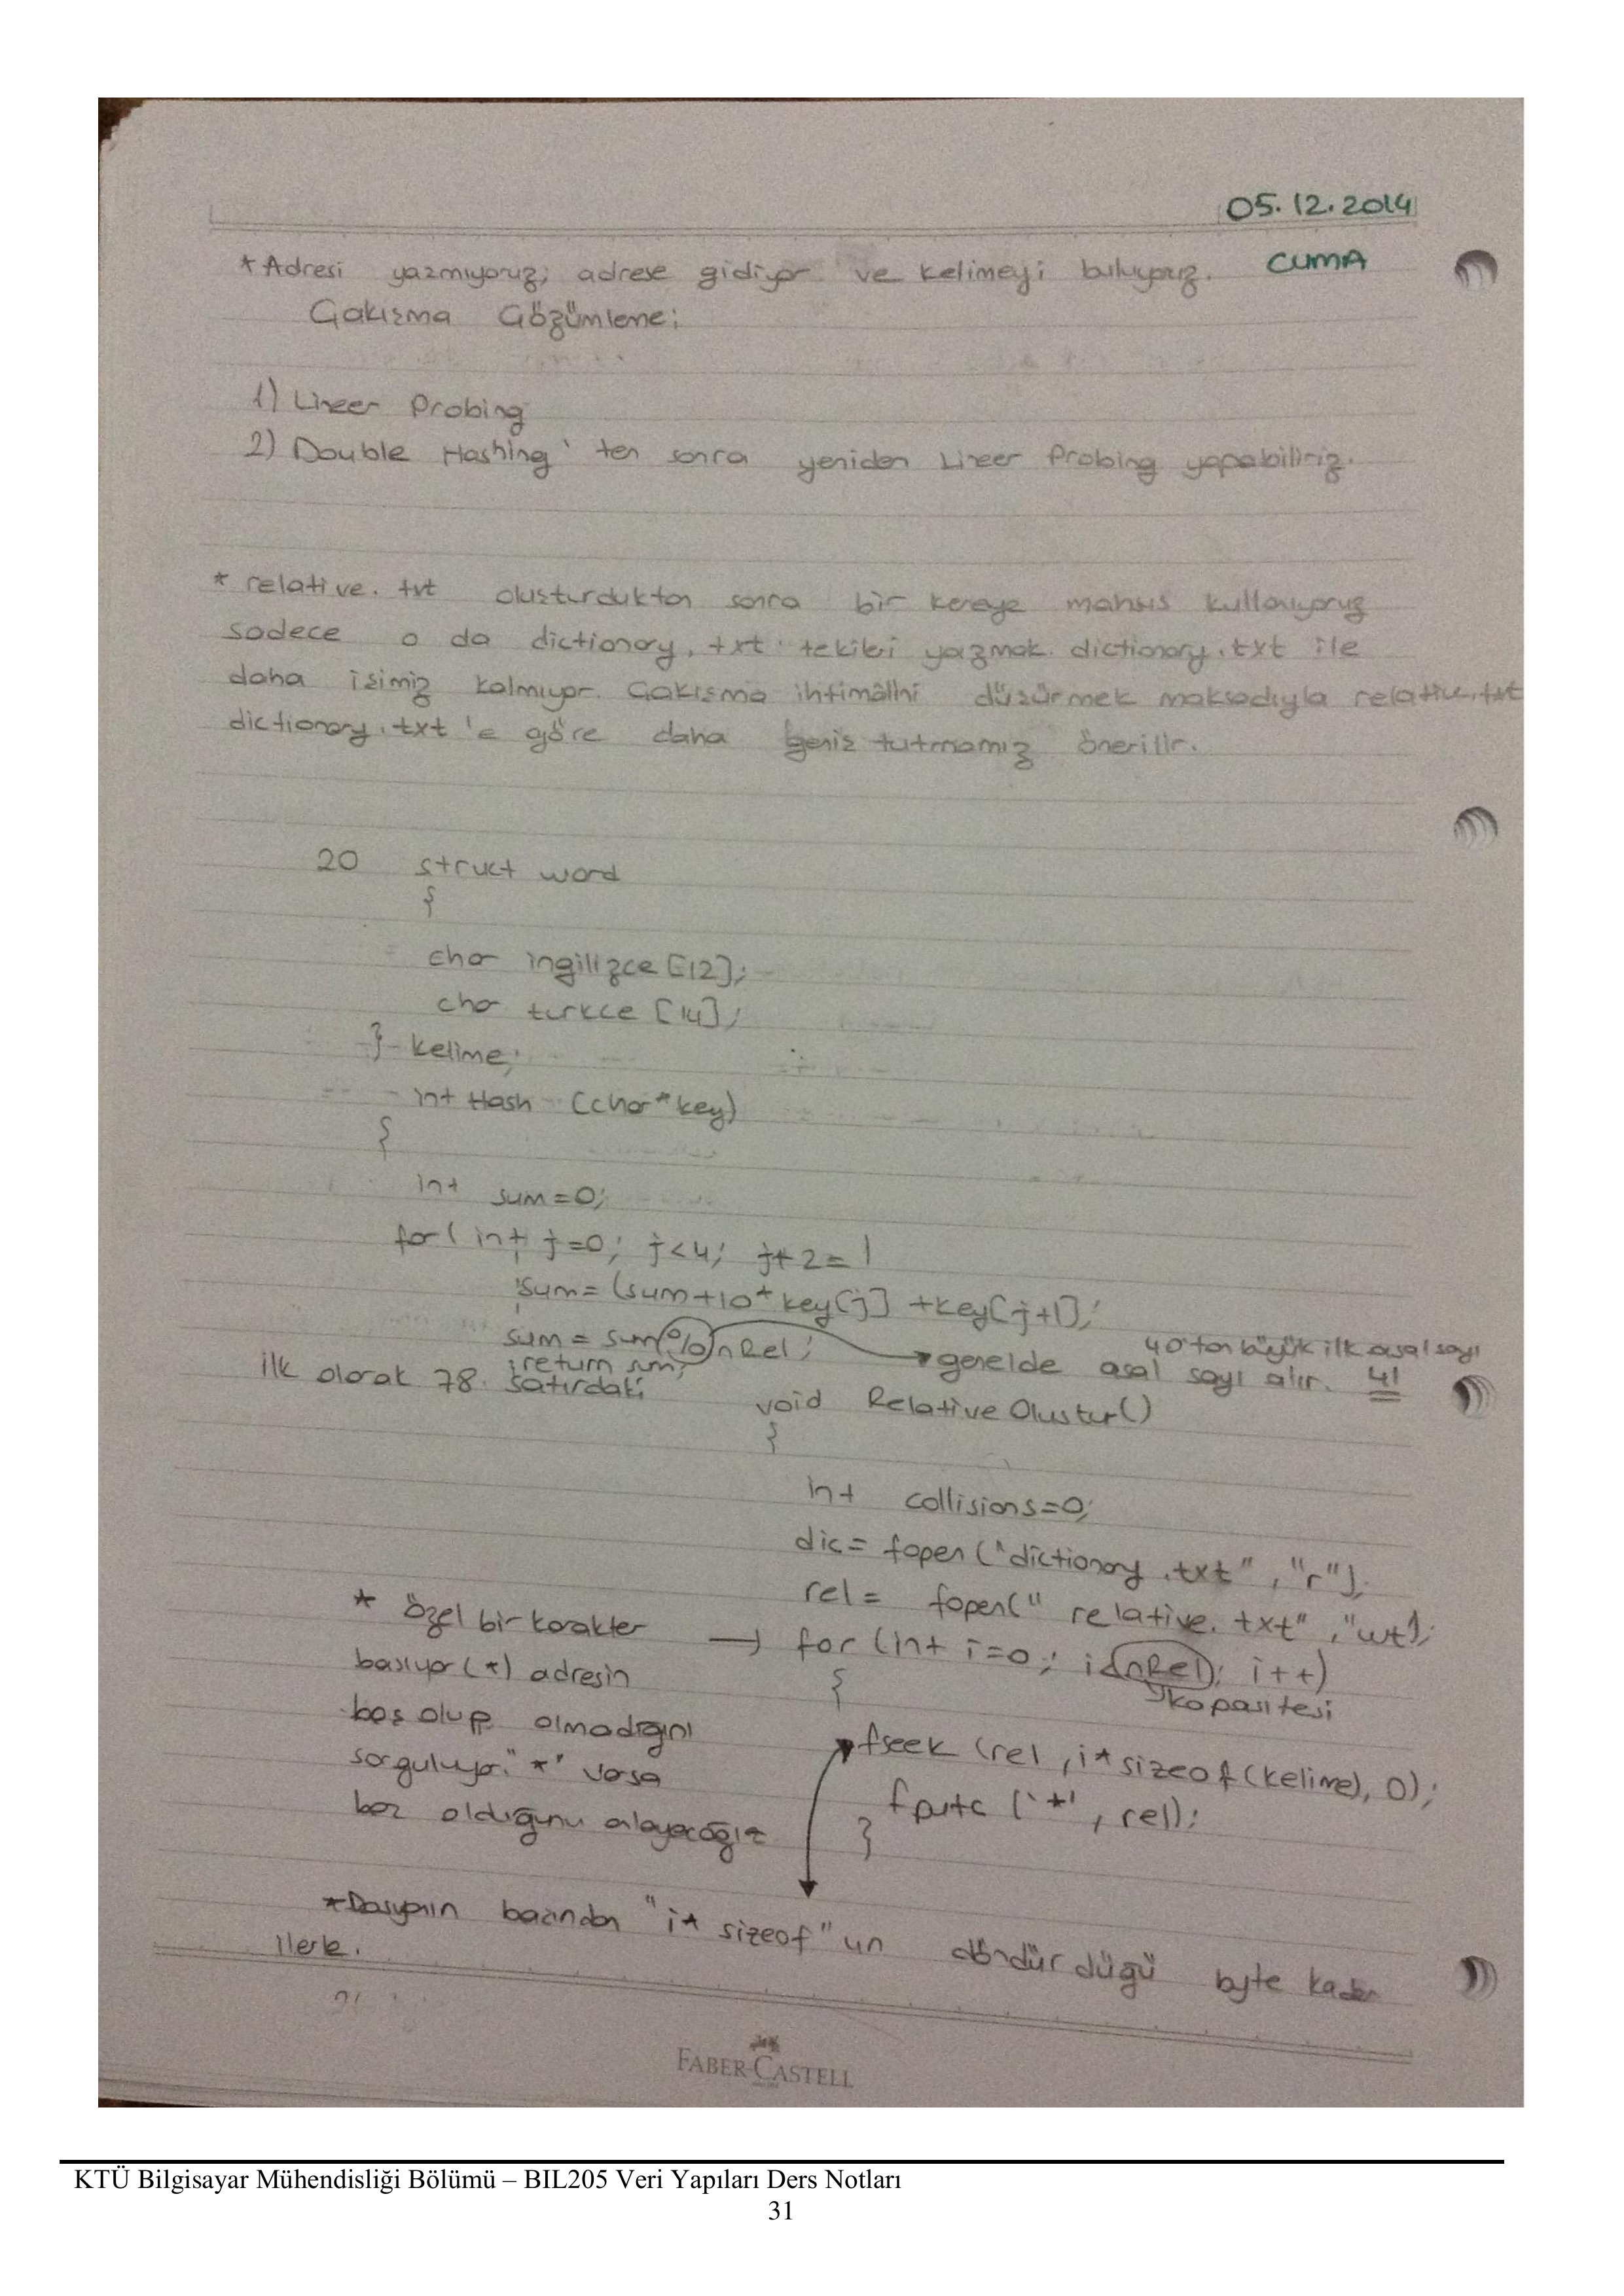 05.12.2014
CUMA
*Adresi yazmıyoruz; adrese gidiyor ve kelimeyi buluyoruz.
Çakışma Çözümleme:
1) Lineer Probing
2) Double Hashing'ten sonra yeniden Lineer Probing yapabiliriz.
* relative.txt oluşturduktan sonra bir kereye mahsus kullanıyoruz
sadece o da dictionary.txt'tekileri yazmak. dictionary.txt ile
daha işimiz kalmıyor. Çakışma ihtimâlini düşürmek maksadıyla relative.txt
dictionary.txt'e göre daha geniş tutmamız önerilir.
20 struct word
{
char ingilizce [12];
char turkce [14];
} kelime;
int Hash (char*key)
{
int sum=0;
for( int j=0; j<4; j+2=)
sum= (sum+10*key[j] +key[j+1];
sum = sum%nRel;
40'tan büyük ilk asal sayı
return sum;
genelde asal sayı alır. 41
ilk olarak 78. satırdaki
void RelativeOlustur()
{
int collisions=0;
dic= fopen ("dictionary.txt", "r");
rel= fopen(" relative.txt", "wt");
* özel bir karakter → for (int i=0; i<nRel; i++)
basıyor (*) adresin
{
kapasitesi
boş olup olmadığını
fseek (rel, i*sizeof(kelime), 0);
sorguluyor. "*" varsa
fputc ('*', rel);
boş olduğunu anlayacağız
}
*Dosyanın başından "i* sizeof"un döndürdüğü byte kadar
ilerle.
FABER-CASTELL
KTÜ Bilgisayar Mühendisliği Bölümü – BIL205 Veri Yapıları Ders Notları
31